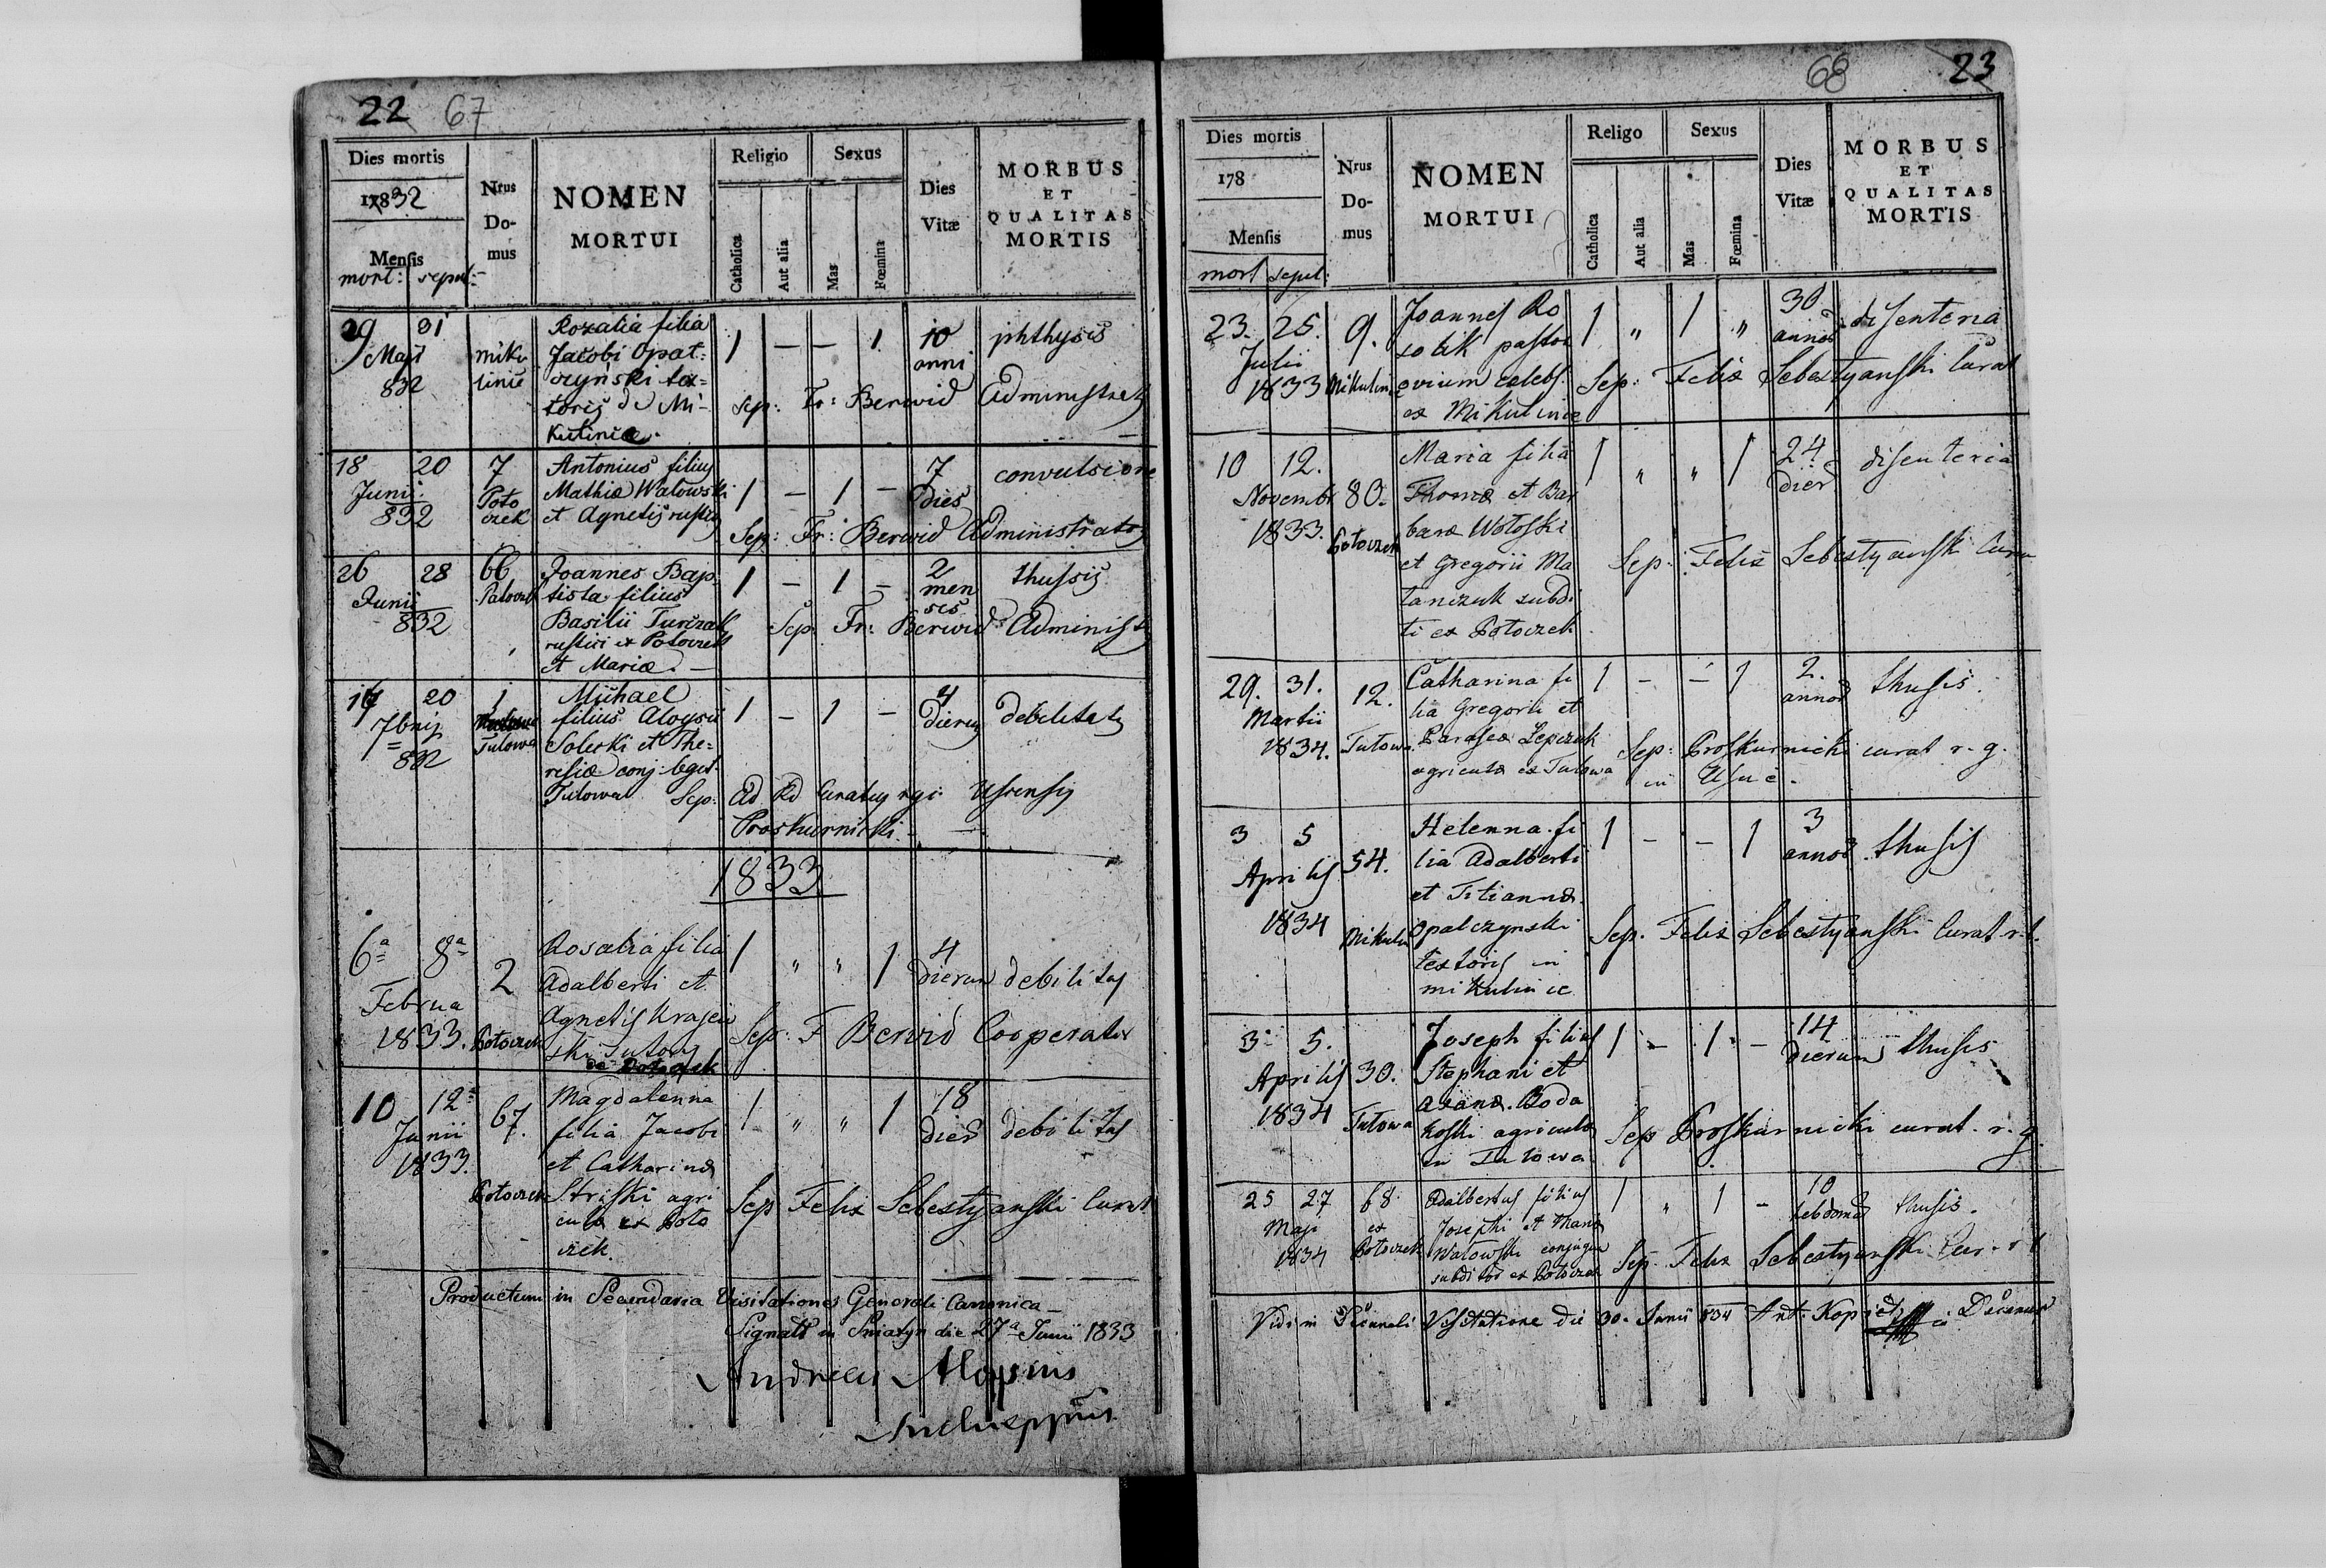 22 67
Dies mortis
17832
Mensis
mort: sepul:
Nrus
Do-
mus
NOMEN
MORTUI
Religio
Catholica
Aut alia
Sexus
Mas
Fœmina
Dies
Vitæ
MORBUS
ET
QUALITAS
MORTIS
29 31
Maji
832
miku
lince
Rozalia filia
Jacobi Opat:
czyński tex=
toris de Mi-
kulince.
1 — — 1
10
anni
phthysis
Sep: Fr: Berwid Administrator
18 20
Junii
832
7
Poto
czek
Antonius filius
Mathiæ Watowski
et Agnetis rustici
1 — 1 —
7
dies
convulsione
Sep: Fr: Berwid Administrator
26 28
Junii
832
66
Potoczek
Joannes Bap
tista filius
Basilii Turczak
rustici ex Potoczek
et Mariæ. —
1 — 1 —
2
men
ses
thussis
Sep: Fr: Berwid Administ
20
7bris
832
1
Tulowa
Michael
filius Aloysii
Soleski et The=
resiæ conj: legit:
Tulowa
1 — 1 —
4
dierum
debilitatis
Sep: Ad Rd Curatus rgi Usciensis
Proskurnicki. —
1833
6a 8a
Februa
1833.
2
Potoczek
Rosalia filia
Adalberti et
Agnetis Krajew
ski
de Potoczek
1 " " 1
4
dierum
debilitas
Sep: F Berwid Cooperator
10 12a
Junii
1833.
67.
Potoczek
Magdalenna
filia Jacobi
et Catharinæ
Striski agri
culæ ex Poto
czek.
1 " " 1
18
dies
debilitas
Sep Felix Sebestyanski Curat
Productum in Secundaria Visitationes Generali Canonica —
Signatt in Sniatyn die 27a Junii 1833
Andreas Aloysius
68 23
Dies mortis
178
Mensis
mort sepul:
Nrus
Do-
mus
NOMEN
MORTUI
Religo
Catholica
Aut alia
Sexus
Mas
Fœmina
Dies
Vitæ
MORBUS
ET
QUALITAS
MORTIS
23. 25.
Julii
1833
9.
Mikulin
Joannes Ro
solik pastor
ovium celebs
ex Mikulince
1 " 1 "
30
annos
disenteria
Sep: Felix Sebestyanski Curat
10 12.
Novembr
1833.
80.
Potoczek
Maria filia
Thomæ et Bar
baræ Wotoski
et Gregorii Ma
tanizuk subdi
ti ex Potoczek
1 " " 1
24
dier
disenteria
Sep: Felix Sebestyanski Cura
29. 31.
Martii
1834.
12.
Tulowa
Catharina fi
lia Gregorii et
Parascæ Lepczuk
agricula ex Tulowa
1 — — 1
2.
annos
thusis.
Sep: Proskurnicki curat r. g.
in Usue.
3 5
Aprilis
1834
54.
Mikulin
Helenna fi
lia Adalberti
et Titiannæ
Opalczynski
textoris in
mikulince
1 — — 1
3
annos.
thusis
Sep. Felix Sebestyanski Curat r. l.
3 5.
Aprilis
1834
30.
Tulowa
Joseph filius
Stephani et
Boda
koski agricula
in Tulowa
1 — 1 —
14
dierum
thusis
Sep Proskurnicki curat. r. g.
25 27
Maji
1834
68
ex
Potoczek
Adalbertus filius
Josephi et Mariæ
Watowski conjugum
subditos ex Potoczek
1 " 1 —
10
hebdomad
thusis.
Sep Felix Sebestyanski Cur. r l
Vidi in Decannali Visitatione die 30. Junii 834 Ant: Decanus